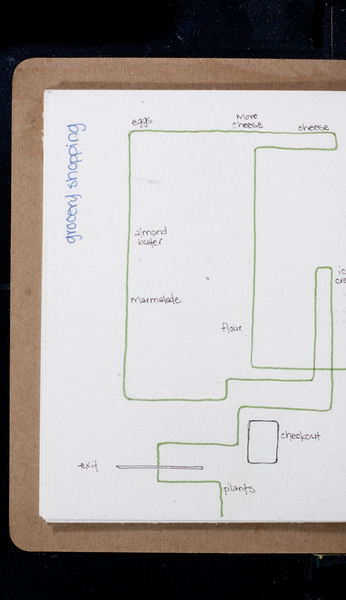 grocery shopping
eggs
more
cheese
cheese
almond
butter
marmalade
ic
cre
flour
checkout
exit
plants